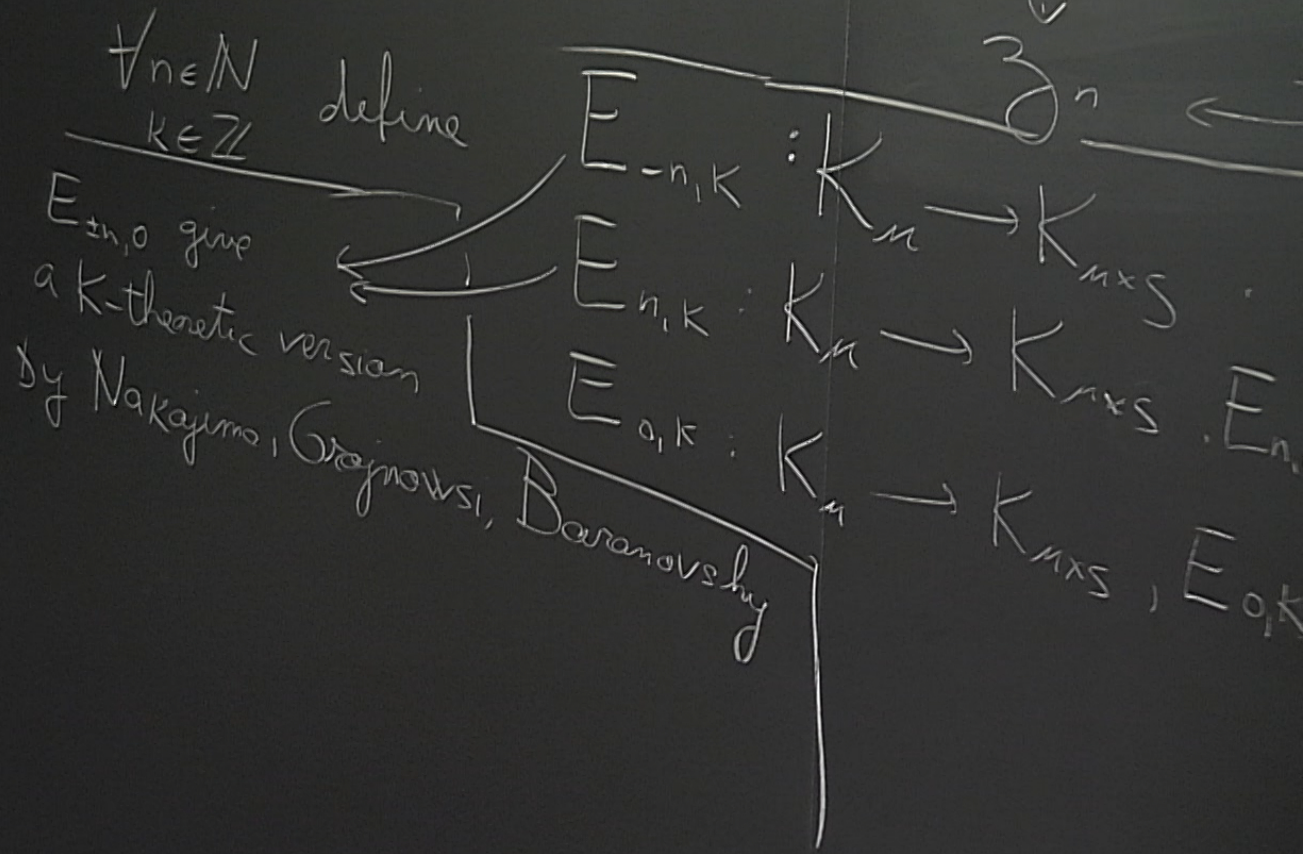 ∀n∈ℕ
k∈ℤ
define
E_{-n,k} : K_M → K_{M×S}
E_{n,k} : K_M → K_{M×S} . E_n,
E_{0,k} : K_M → K_{M×S} , E_{0,k}
𝔷_n ←
E_{±n,0} give
a K-theoretic version
by Nakajima, Grojnowsi, Baranovshy